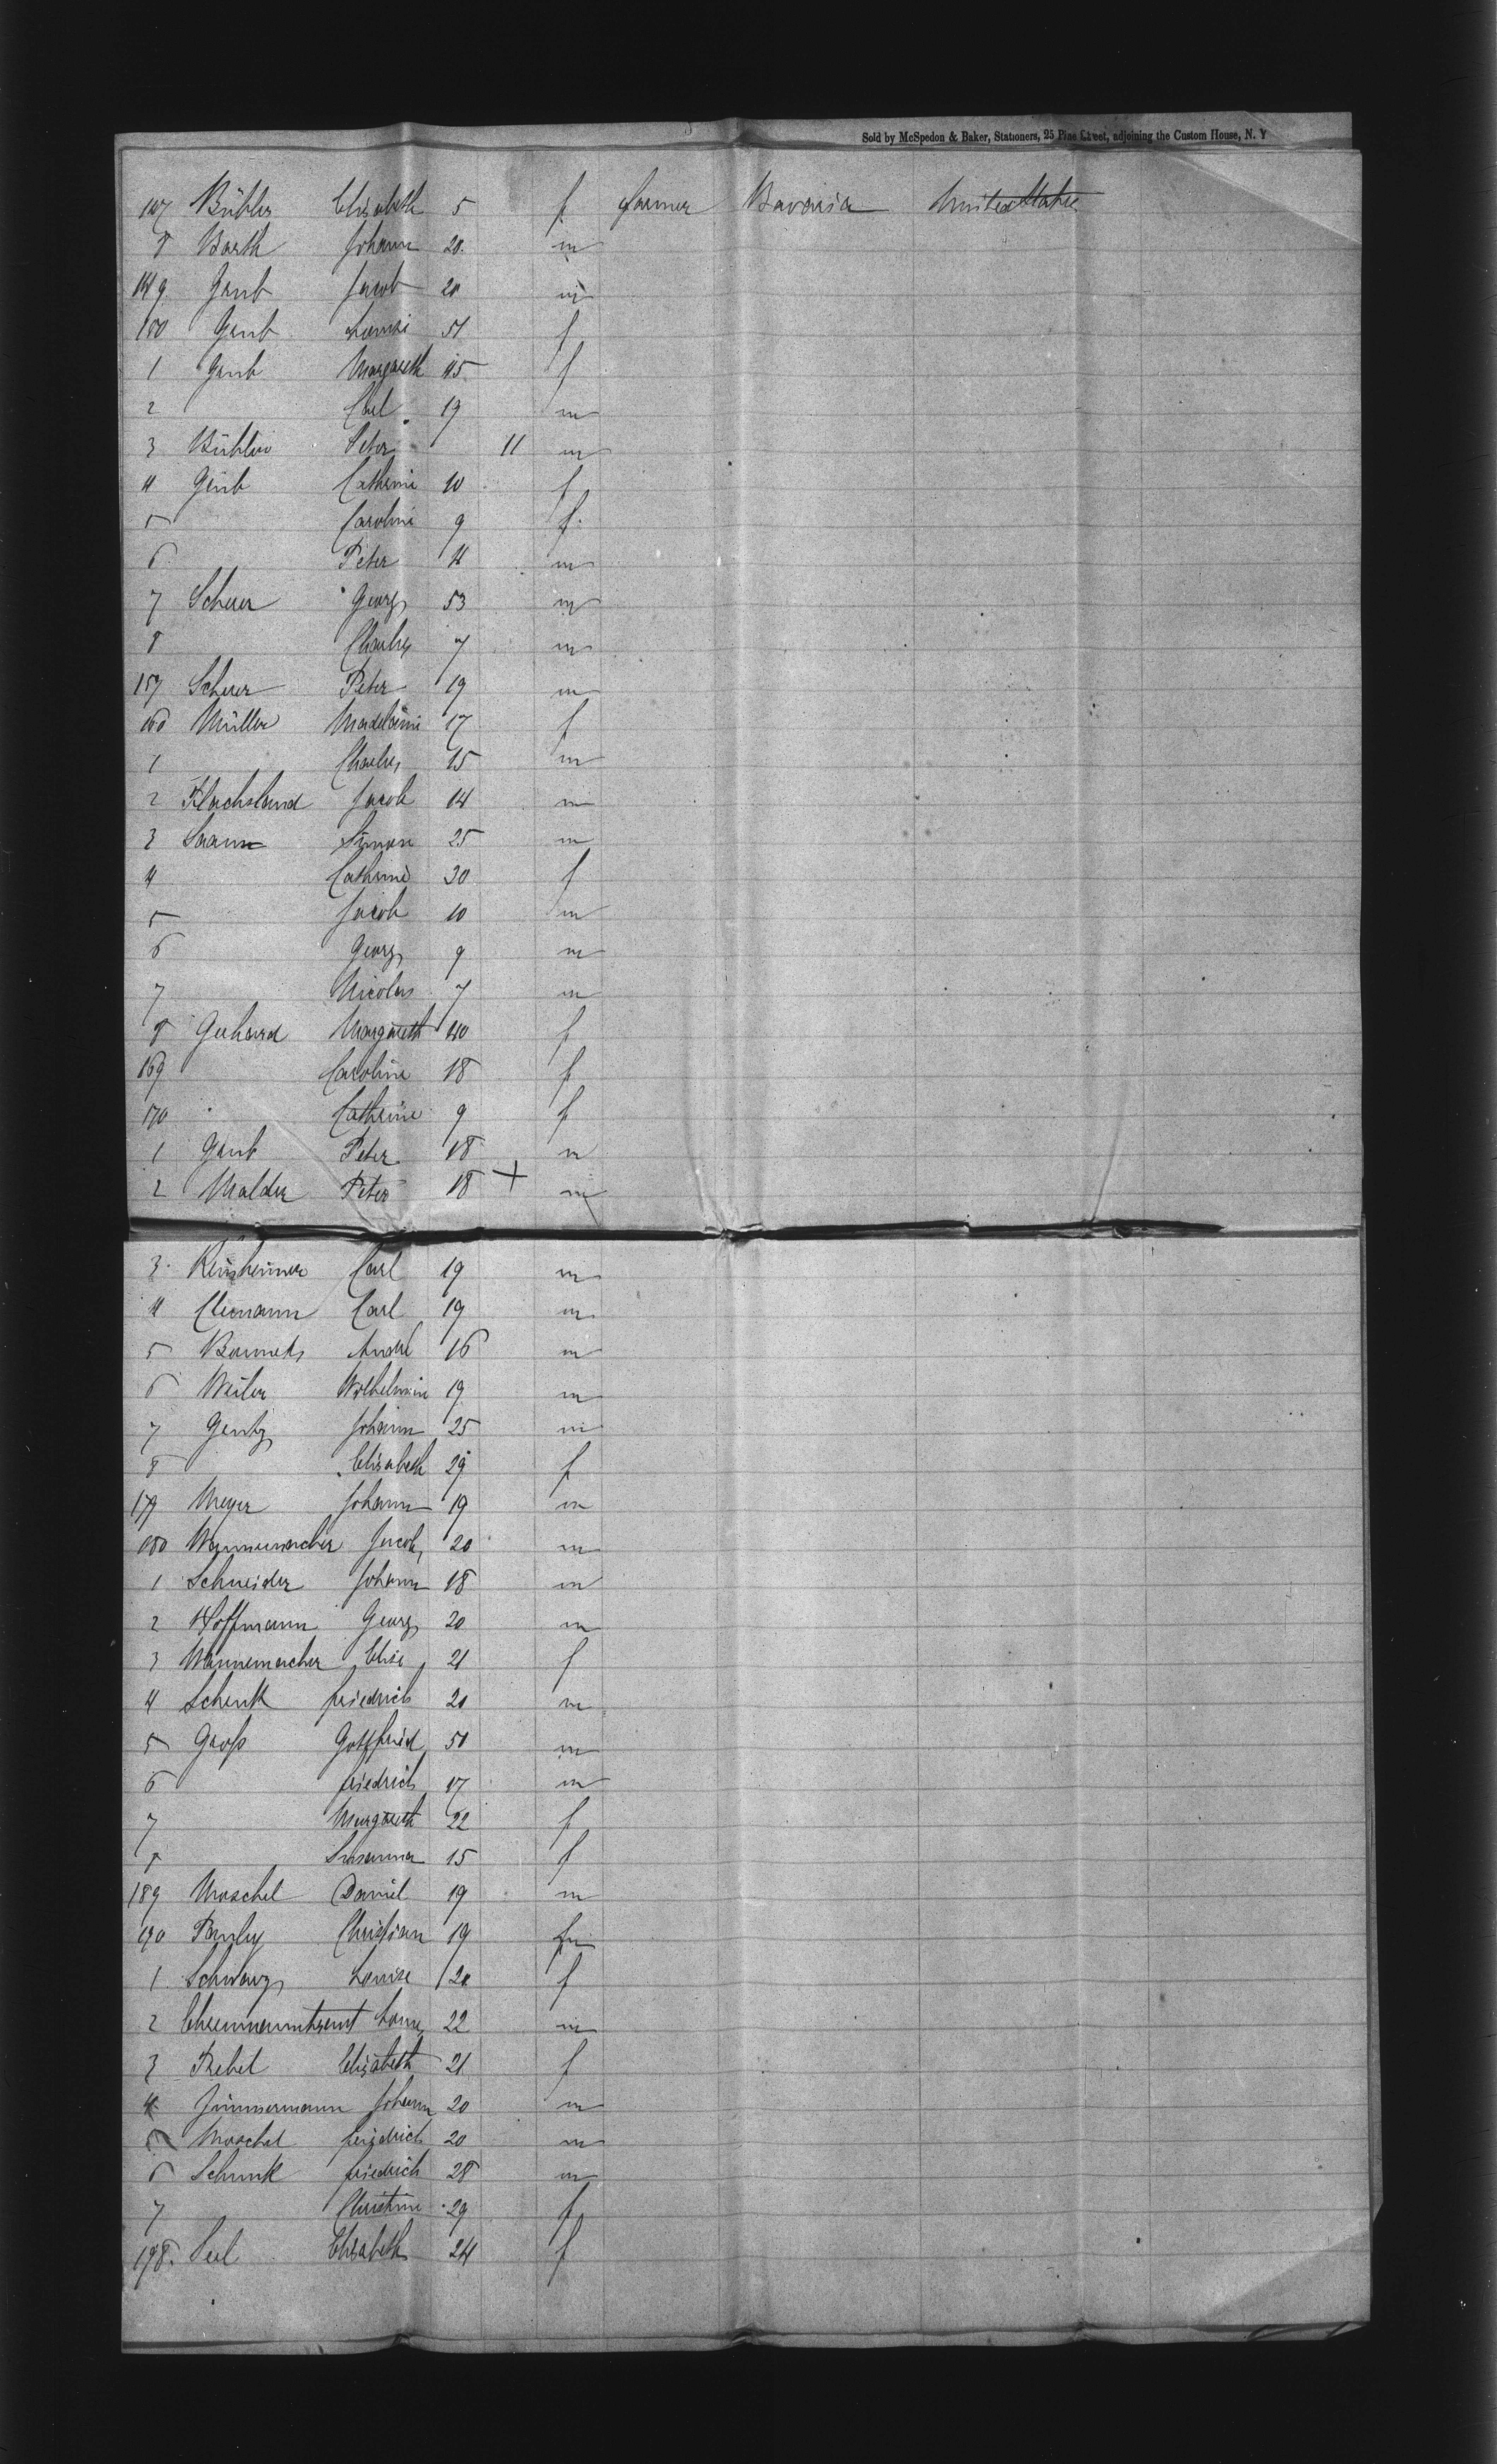 Sold by McSpedon & Baker, Stationers, 25 Pine Street, adjoining the Custom House, N. Y
147 Bühler Elisabeth 5 f farmer Bavaria United States
8 Barth Johann 20. m
149. Gaub Jacob 20 m
150 Gaub 51 f
1 Gaub Margareth 45 f
2 Carl 19 m
3 Bühler Peter 11 m
4 Gaub Catherine 10 f
5 Caroline 9 f.
6 Peter 4 m
7 Scherer Georg 53 m
8 Charles 7 m
159 Scherer Peter 19 m
160 Müller Madelaine 17 f
1 Charles 15 m
2 Flachsland Jacob 14 m
3 Saam Simon 25 m
4 Catherine 30 f
5 Jacob 10 m
6 Georg 9 m
7 Nicolas 7 m
8 Gerhard Margareth 40 f
169 Caroline 18 f
170 Catherine 9 f
1 Gaub Peter 18 m
2 Malder Peter 18 + m
3. Carl 19 m
4 Clemann Carl 19 m
5 André 16 m
6 Weiler Wilhelmin 19 m
7 Gentz Johann 25 m
8 Elisabeth 29 f
179 Meyer Johann 19 m
180 Wannemacher Jacob 20 m
1 Schneider Johann 18 m
2 Hoffmann Georg 20 m
3 Wannemacher Elise 21 f
4 Schenk friedrich 20 m
5 Groß Gottfried 51 m
6 friedrich 17 m
7 Margareth 22 f
8 Susanna 15 f
189 Moschel Daniel 19 m
190 Pauly Christian 19 m
1 Schwarz Louise 20 f
2 22 m
3 Rebel Elisabeth 21 f
4 Zimmermann Johann 20 m
5 Moschel friedrich 20 m
6 Schunk friedrich 28 m
7 Christine 29 f
198. Seel Elisabeth 24 f